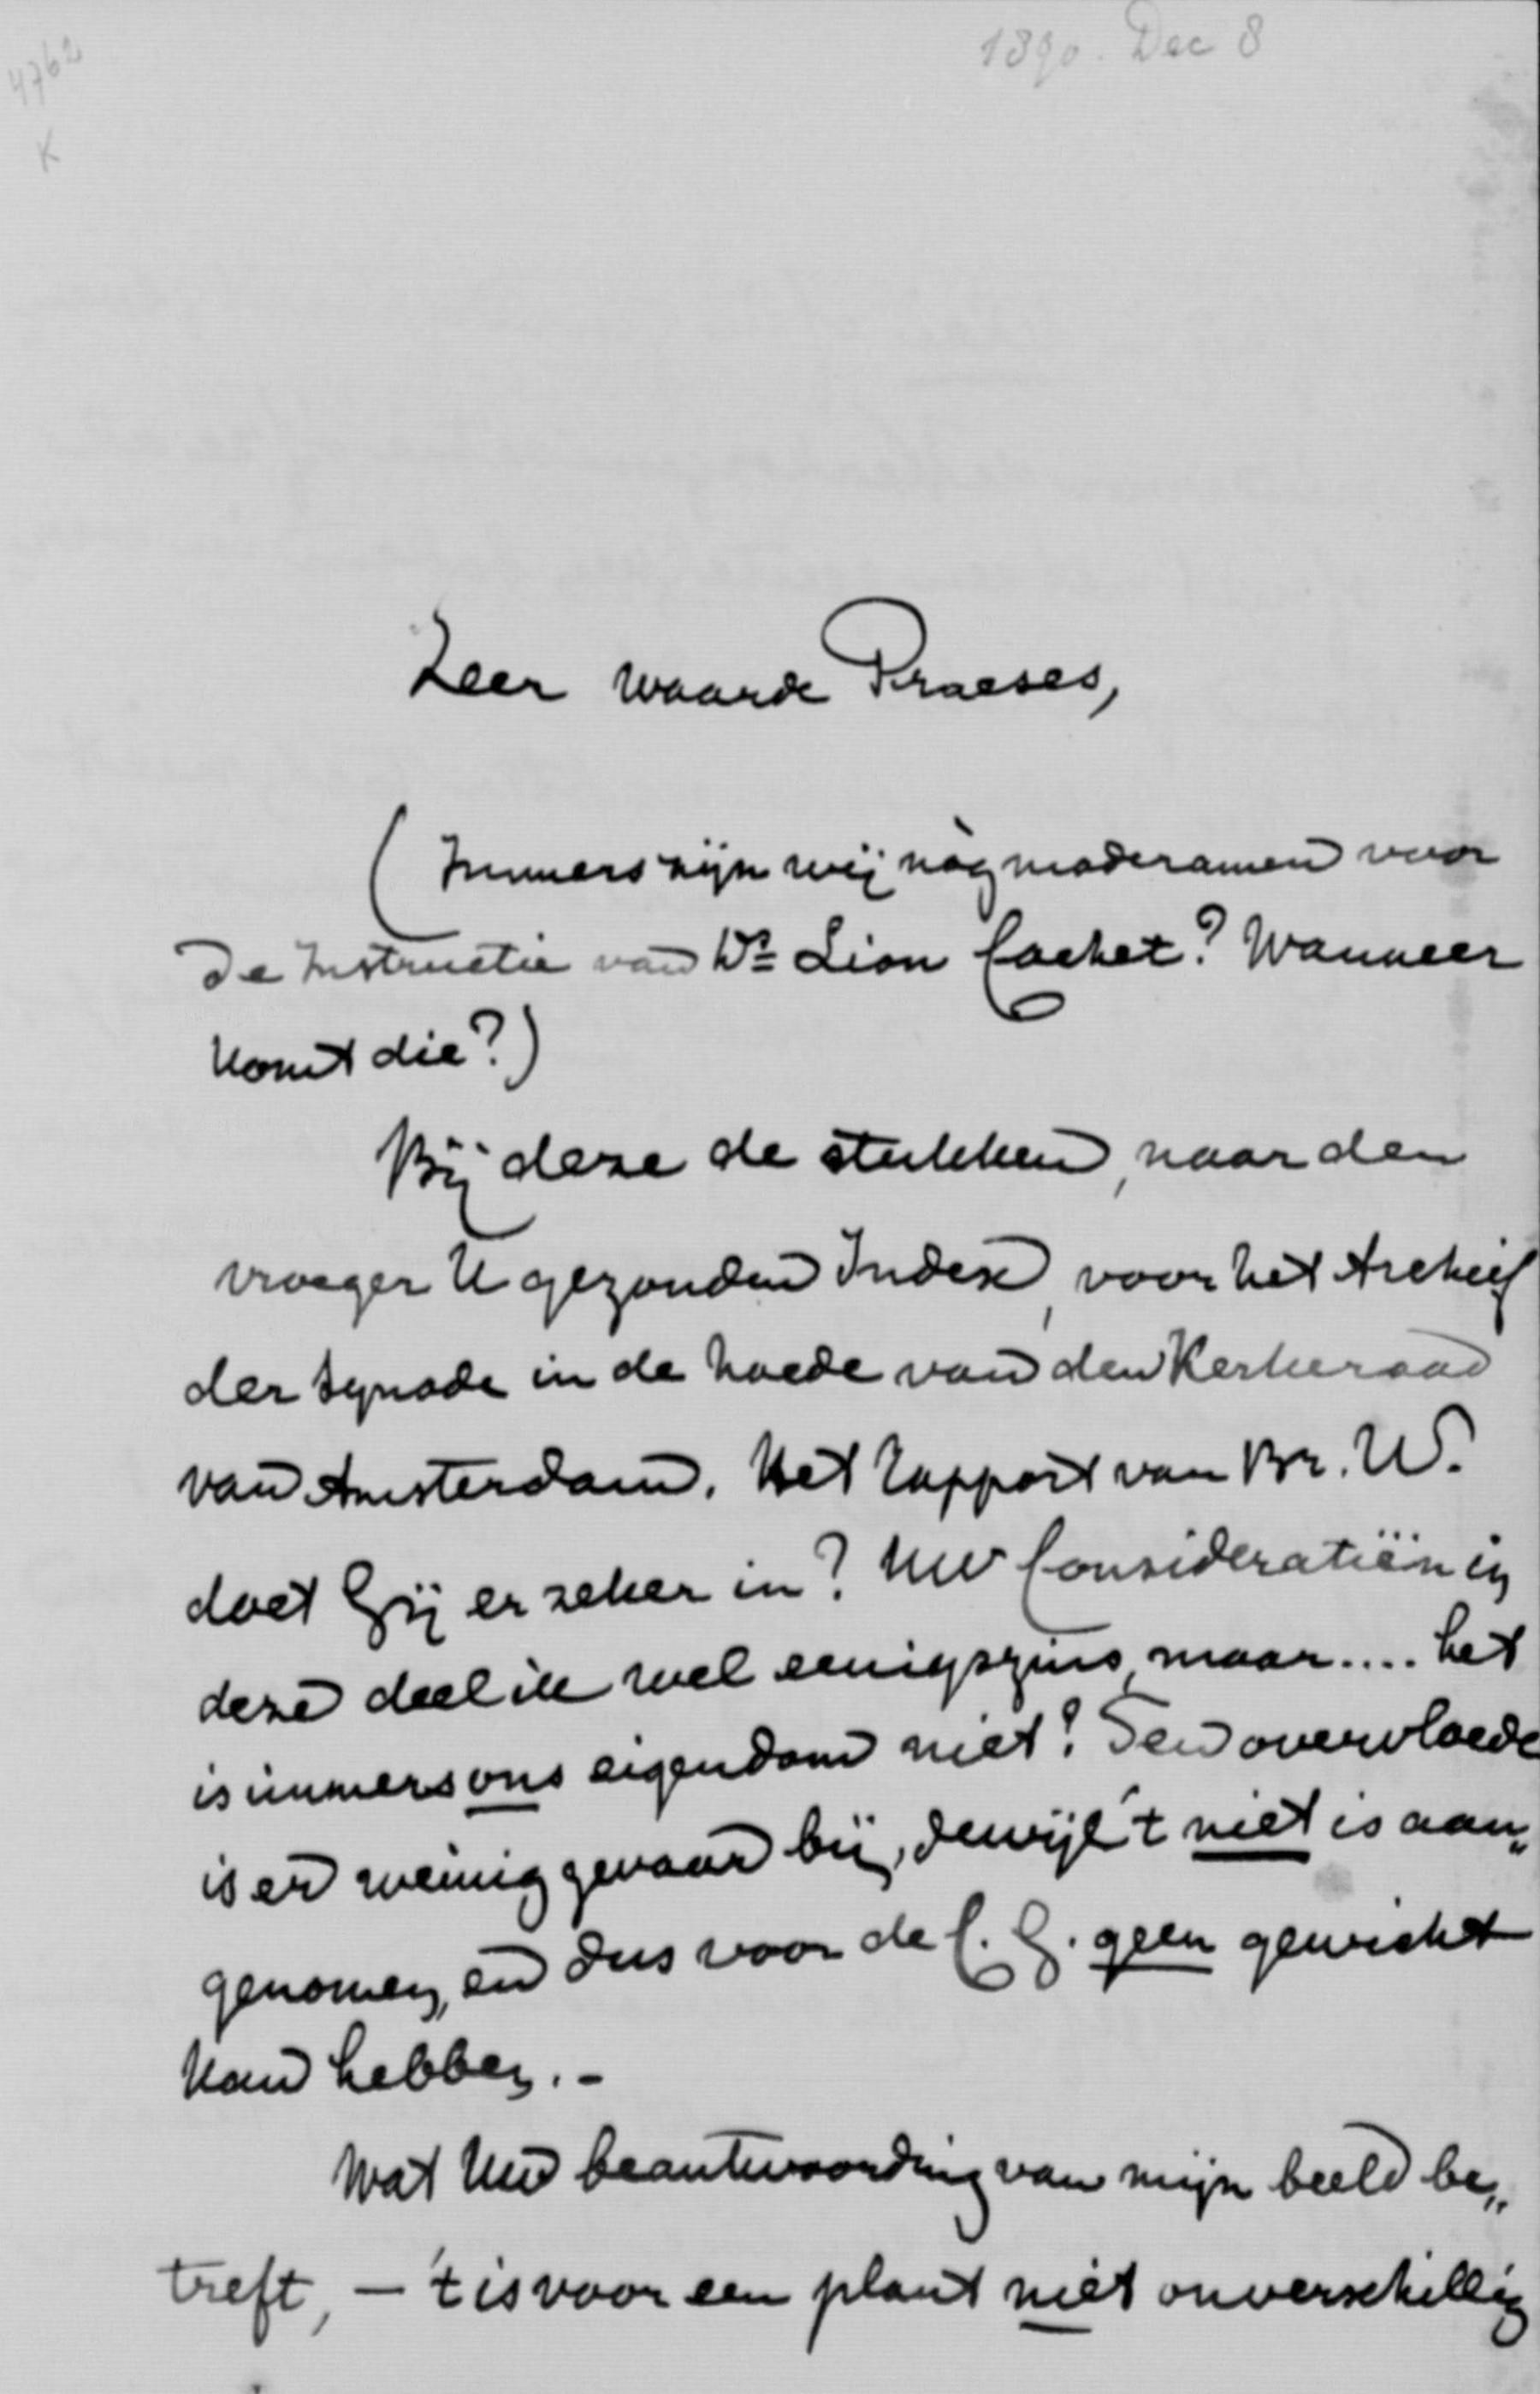 4762
K
1890. Dec 8
Zeer waarde Praeses,
(Immers zijn wij nòg moderamen voor
de Instructie van Ds Lion Cachet? Wanneer
komt die?)
Bij deze de stukken, naar den
vroeger U gezonden Index, voor het Archief
der Synode in de hoede van den Kerkeraad
van Amsterdam. Het Rapport van Br. W.
doet Gij er zeker in? Uw Consideratiën in
deze deel ik wel eenigszins, maar.... het
is immers ons eigendom niet? Ten overvloede
is er weinig gevaar bij, dewijl 't niet is aan„
genomen, en dus voor de C. G. geen gewicht
kan hebben. -
Wat Uw beantwoording van mijn beeld be„
treft, — 't is voor een plant niet onverschillig